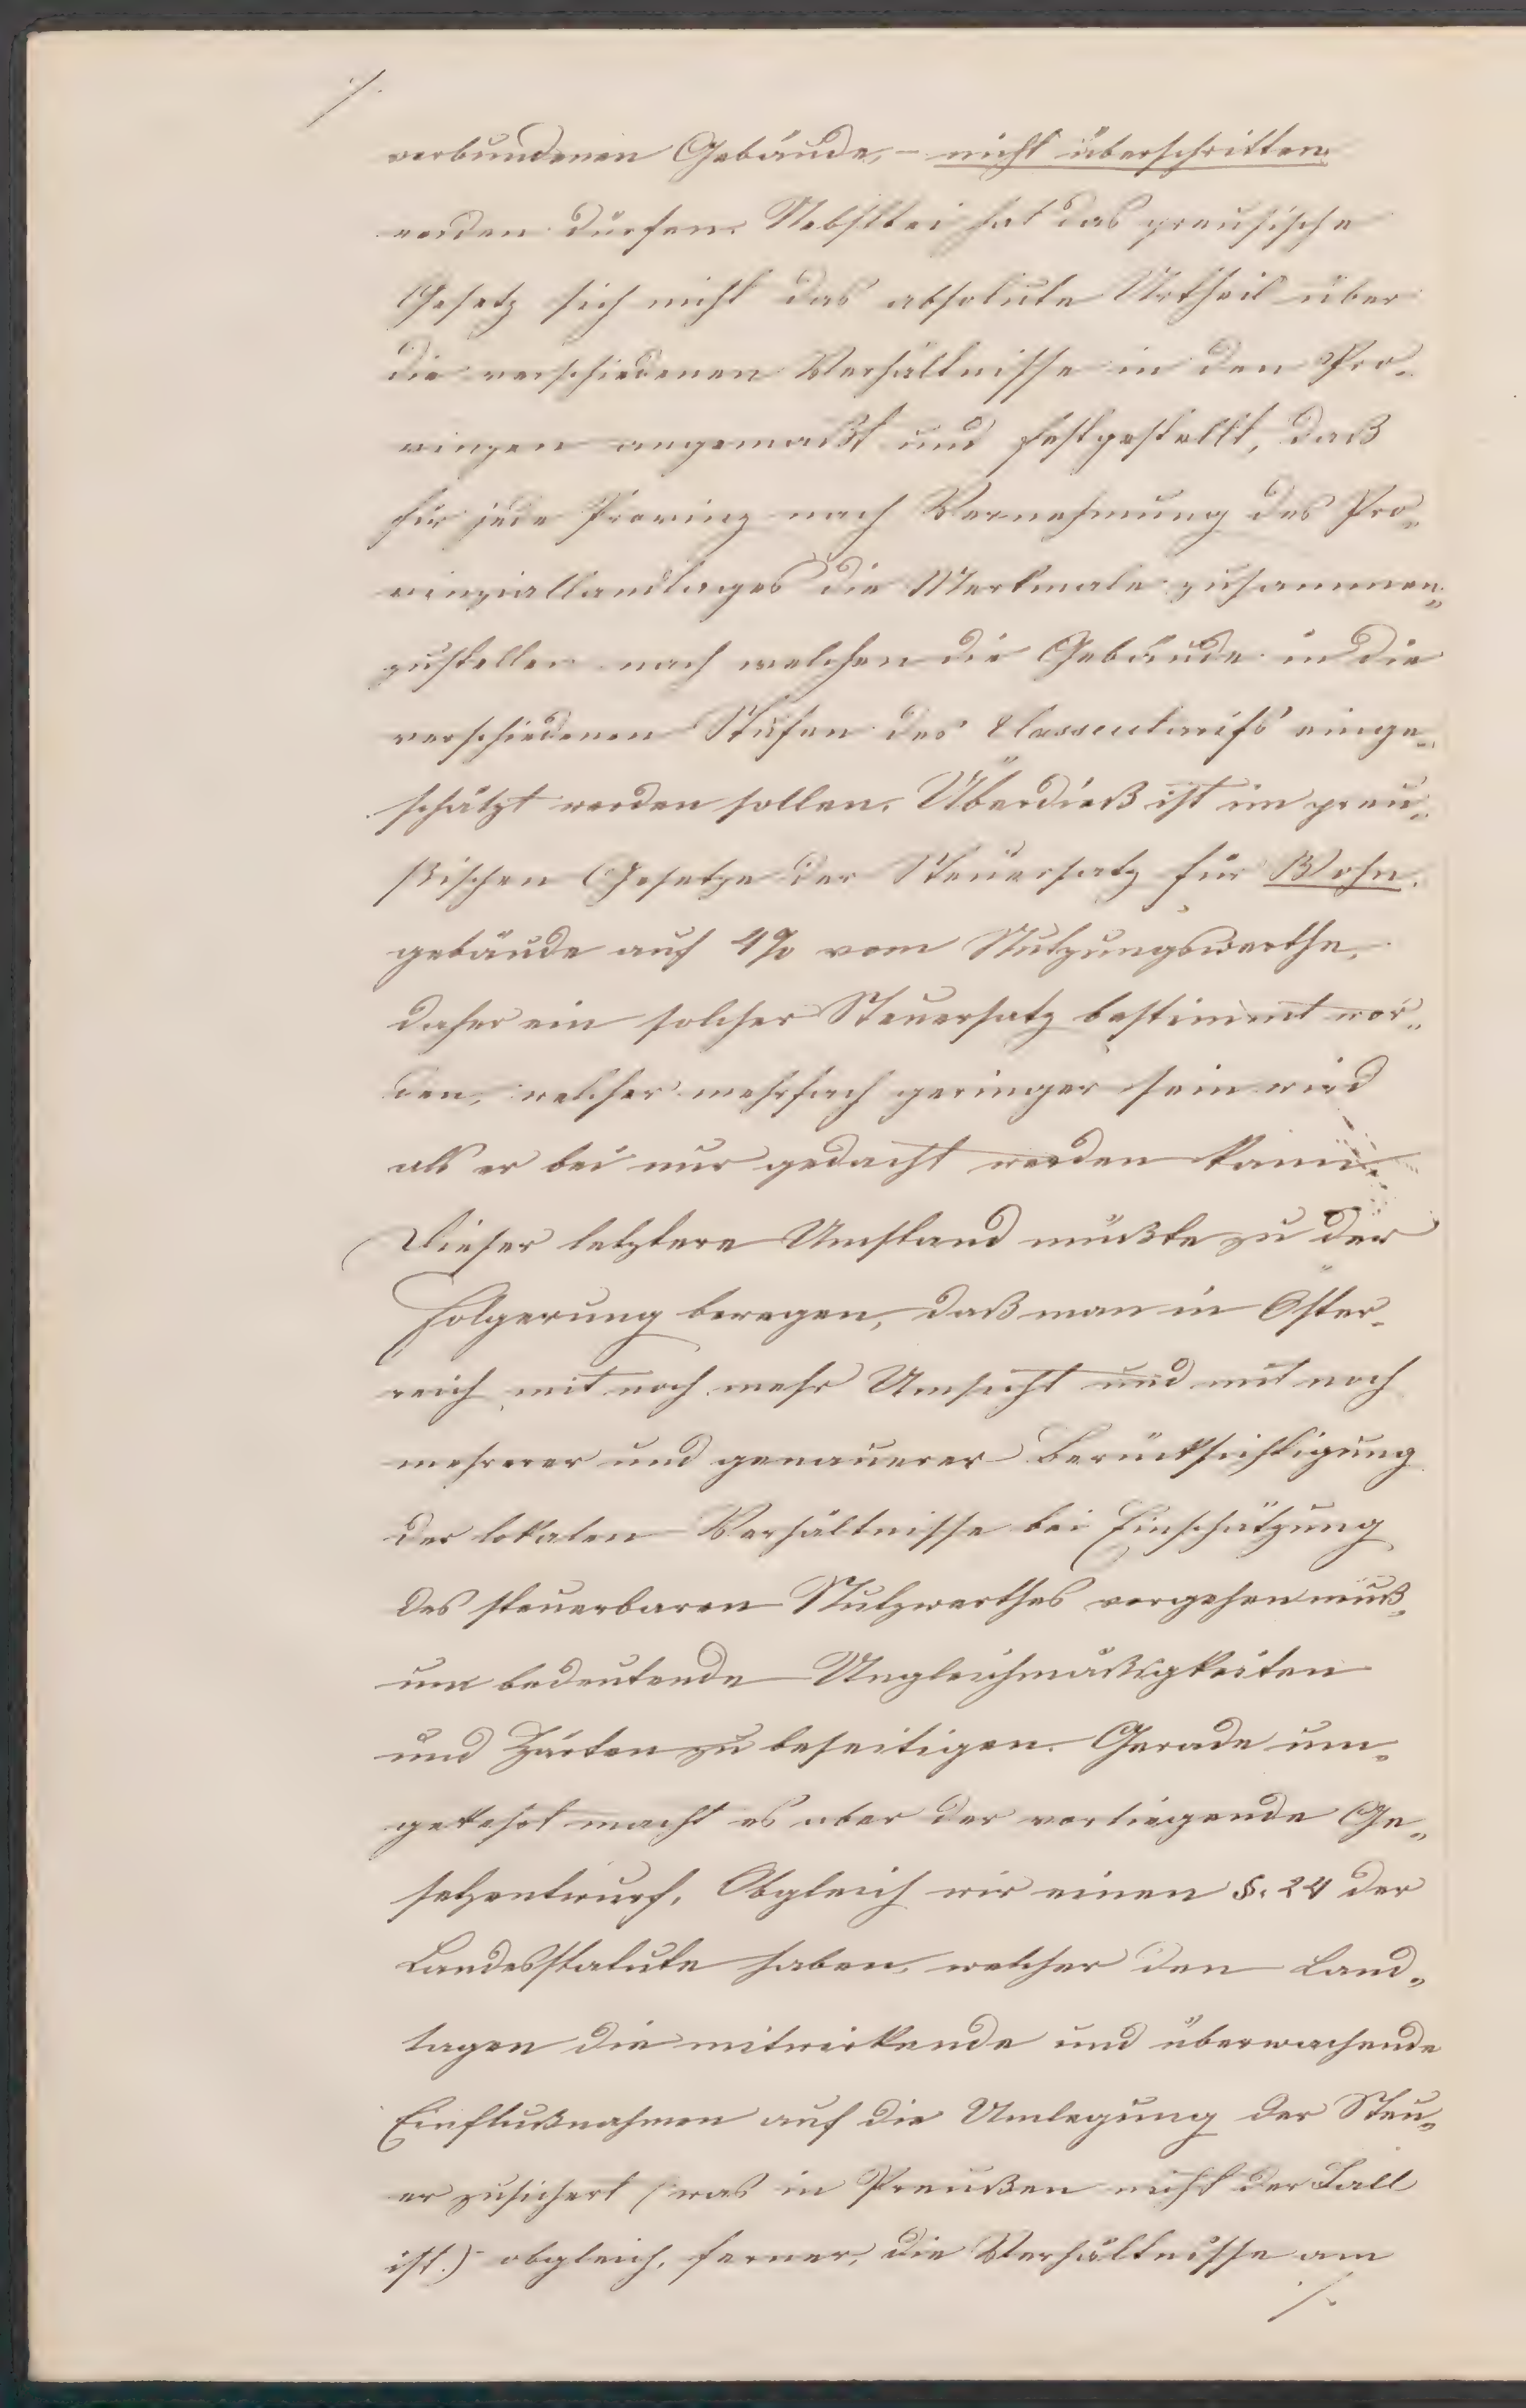 ./.
verbundenen Gebäude, – nicht überschritten
werden dürfen. Nebstbei hat das preusische
Gesetz sich nicht das absolute Urtheil über
die verschiedenen Verhältnisse in den Pro-
vinzen angemaßt und festgestellt, daß
für jede Provinz nach Vernehmung des Pro-
vinziallandtages die Merkmale zusammen-
zustellen nach welchen die Gebäude in die
verschiedenen Stufen des Classentarifs einge-
schätzt werden sollen. Überdieß ist im preu-
ßischen Gesetze der Steuersatz für Wohn-
gebäude auf 4% vom Nutzungswerthe,
daher ein solcher Steuersatz bestimmt wor-
den, welcher mehrfach geringer sein wird
als er bei nur gedacht werden kann.
Dieser letztere Umstand müßte zu der
Folgerung bewegen, daß man in Öster-
reich mit noch mehr Umsicht und mit noch
mehrerer und genauerer Berücksichtigung
der lokalen Verhältnisse bei Einschätzung
des steuerbaren Nutzwerthes vorgehen muß,
um bedeutende Ungleichmäßigkeiten
und Härten zu beseitigen. Gerade um-
gekehrt macht es aber der vorliegende Ge-
setzentwurf. Obgleich wir einen §. 24 der
Landesstatute haben, welcher den Land-
tagen die mitwirkende und überwachende
Einflußnahmen auf die Umlegung der Steu-
er zusichert (was in Preußen nicht der Fall
ist.) obgleich, ferner, die Verhältnisse am
./.